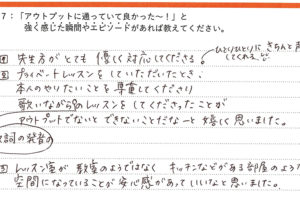 7：「アウトプットに通っていて良かった～！」と
強く感じた瞬間やエピソードがあれば教えてください。
先生方がとても優しく対応してくださる。
ひとりひとりにきちんと声
してくれる。
プライベートレッスンをしていただいたとき、
本人のやりたいことを尊重してくださり
歌いながらのレッスンをしてくださったことが
アウトプットでないとできないことだなーと嬉しく思いました。
歌詞の発音の
レッスン室が教室のようではなくキッチンなどがある部屋のような
空間になっていることが安心感があっていいなと思いました。